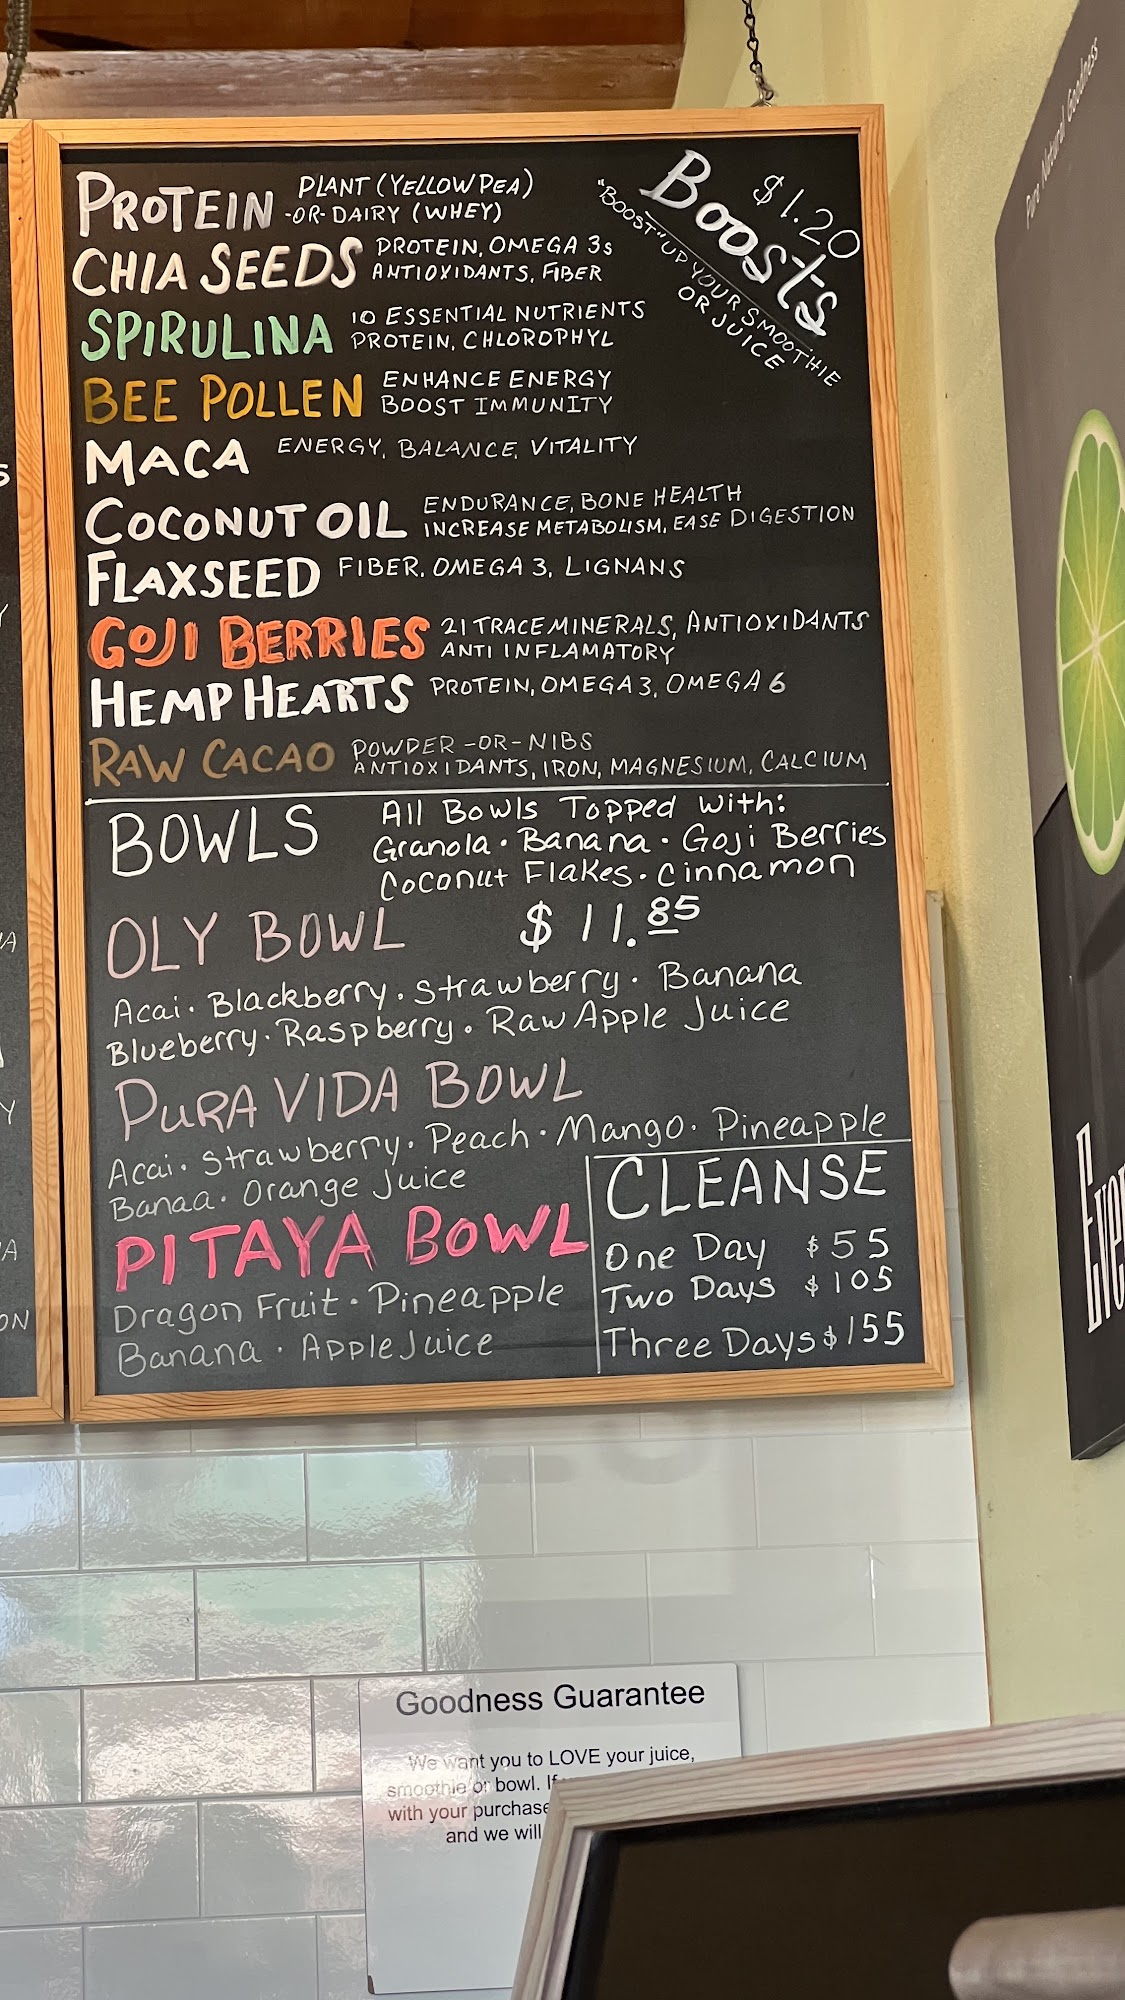 PROTEIN PLANT (YELLOW PEA)
-OR- DAIRY (WHEY)
CHIA SEEDS PROTEIN, OMEGA 3s
ANTIOXIDANTS, FIBER
SPIRULINA 10 ESSENTIAL NUTRIENTS
PROTEIN, CHLOROPHYL
BEE POLLEN ENHANCE ENERGY
BOOST IMMUNITY
MACA ENERGY, BALANCE, VITALITY
COCONUT OIL ENDURANCE, BONE HEALTH
INCREASE METABOLISM, EASE DIGESTION
FLAXSEED FIBER, OMEGA 3, LIGNANS
GOJI BERRIES 21 TRACE MINERALS, ANTIOXIDANTS
ANTI INFLAMATORY
HEMP HEARTS PROTEIN, OMEGA 3, OMEGA 6
RAW CACAO POWDER -OR- NIBS
ANTIOXIDANTS, IRON, MAGNESIUM, CALCIUM
$1.20
Boosts
"BOOST" UP YOUR SMOOTHIE
OR JUICE
BOWLS
All Bowls Topped with:
Granola · Banana · Goji Berries
Coconut Flakes · Cinnamon
OLY BOWL $11.85
Acai · Blackberry · Strawberry · Banana
Blueberry · Raspberry · Raw Apple Juice
PURA VIDA BOWL
Acai · Strawberry · Peach · Mango · Pineapple
Banaa · Orange Juice
PITAYA BOWL
Dragon Fruit · Pineapple
Banana · Apple Juice
CLEANSE
One Day $55
Two Days $105
Three Days $155
Pure Natural Goodness
Goodness Guarantee
We want you to LOVE your juice,
smoothie or bowl. If
with your purchase
and we will